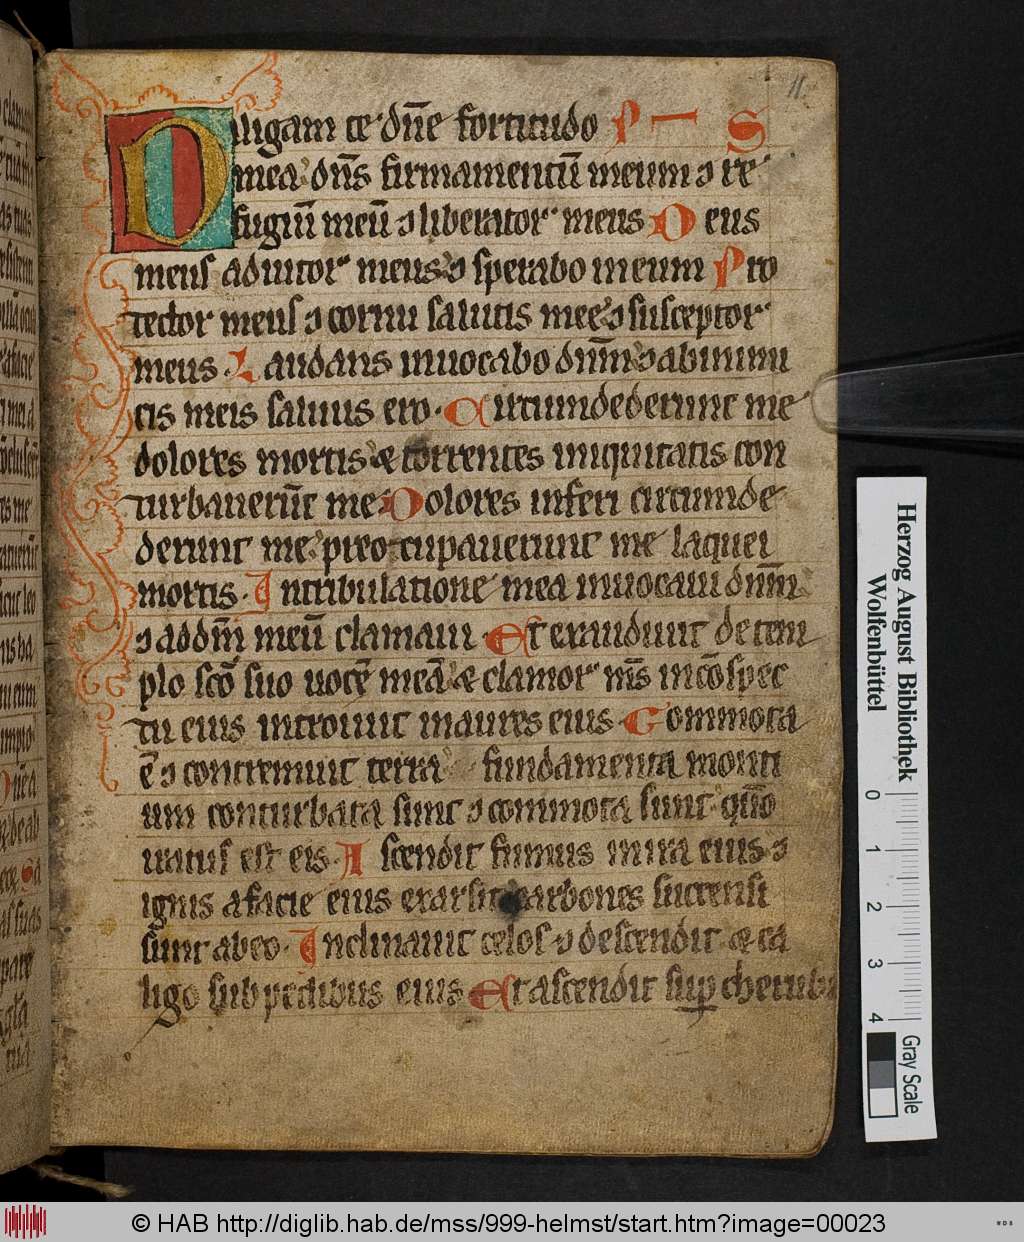 11
Diligam te dn̄e fortitudo P S
mea dn̄s firmamentū meum ⁊ re
fugiū meū ⁊ liberator meus Deus
meus adiutor meus ⁊ sperabo in eum Pro
tector meus ⁊ cornu salutis mee ⁊ susceptor
meus. Laudans inuocabo dn̄m ⁊ ab inimi
cis meis saluus ero. Circumdederunt me
dolores mortis & torrentes iniquitatis con
turbauerūt me Dolores inferi circumde
derunt me preoccupauerunt me laquei
mortis. In tribulatione mea inuocaui dn̄m
⁊ ad dm̄ meū clamaui. Et exaudiuit de tem
plo scō suo uocē meā & clamor m̄s in cōspec
tu eius introiuit in aures eius Commota
ē ⁊ contremuit terra fundamenta monti
um conturbata sunt ⁊ commota sunt qūo
iratus est eis. Ascendit fumus in ira eius ⁊
ignis a facie eius exarsit carbones succensi
sunt ab eo. Inclinauit celos ⁊ descendit & ca
ligo sub pedibus eius Et ascendit sup cherubi
Herzog August Bibliothek
Wolfenbüttel
0 1 2 3 4
Gray Scale
© HAB http://diglib.hab.de/mss/999-helmst/start.htm?image=00023